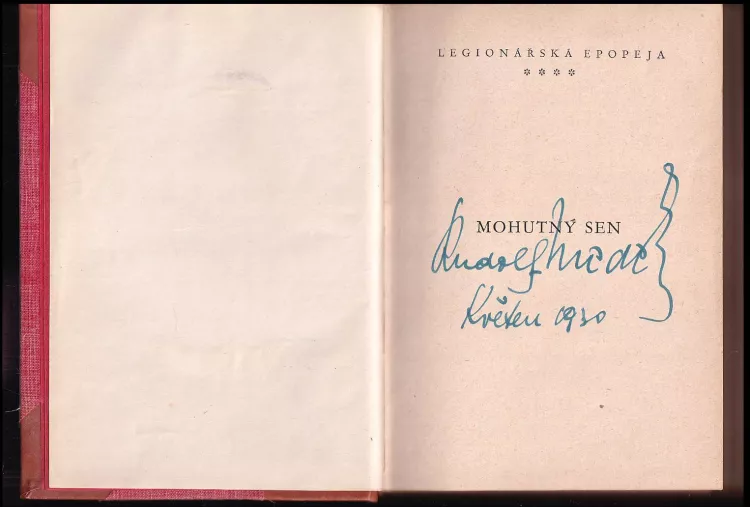 LEGIONÁŘSKÁ EPOPEJA
****
MOHUTNÝ SEN
Rudolf Medek
Květen 1930